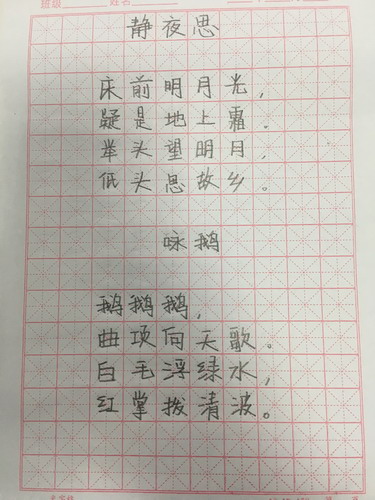 班级 姓名
静夜思
床前明月光,
疑是地上霜.
举头望明月,
低头思故乡。
咏鹅
鹅鹅鹅,
曲项向天歌。
白毛浮绿水,
红掌拨清波。